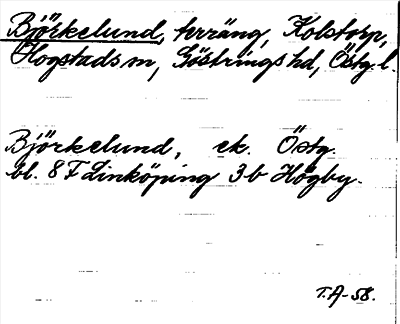 Björkelund, terräng, Kolstorp,
Hogstads sn, Göstrings hd, Östg. l.
Björkelund, ek. Östg.
bl. 8 F Linköping 3b Högby.
T.A-58.